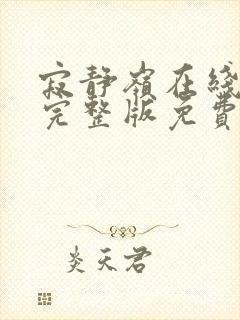 寂静嶺在线
完整版免費
炎天君